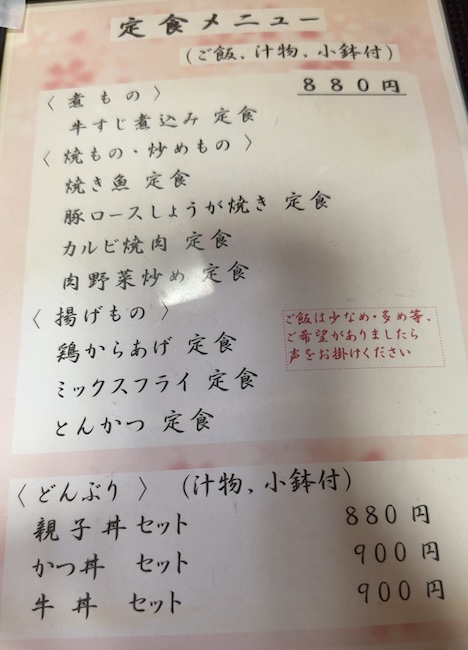 定食メニュー
(ご飯、汁物、小鉢付)
880円
〈 煮もの 〉
牛すじ煮込み 定食
〈 焼もの・炒めもの 〉
焼き魚 定食
豚ロースしょうが焼き 定食
カルビ焼肉 定食
肉野菜炒め 定食
〈 揚げもの 〉
鶏からあげ 定食
ミックスフライ 定食
とんかつ 定食
ご飯は少なめ・多め等、
ご希望がありましたら
声をお掛けください
〈 どんぶり 〉 (汁物、小鉢付)
親子丼セット 880円
かつ丼 セット 900円
牛丼 セット 900円